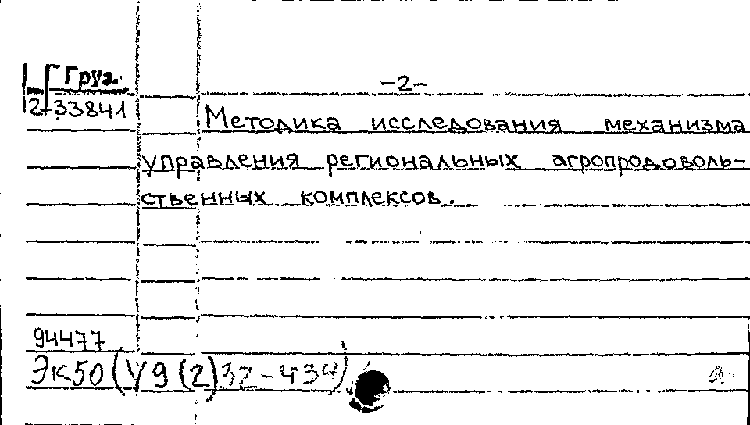 Груз.
-2-
2-33841
Методика исследования механизма
управления региональных агропродоволь-
ственных комплексов.
94477
Эк50(У9(2)32-434)